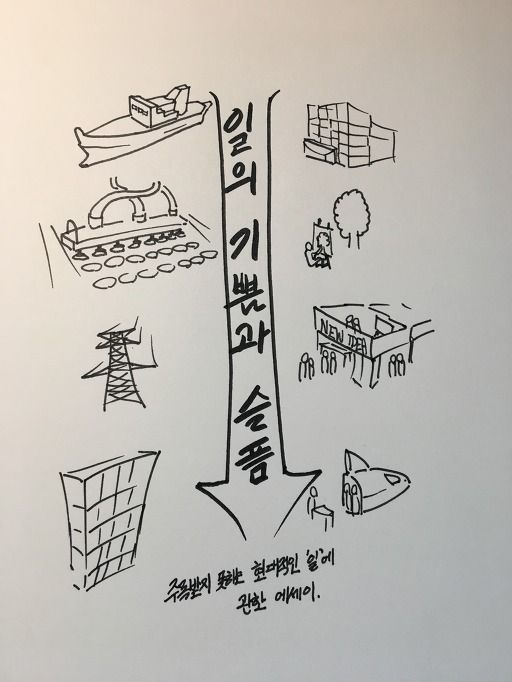 일의 기쁨과 슬픔
NEW IDEA
주목받지 못하는 현대적인 '일'에
관한 에세이.